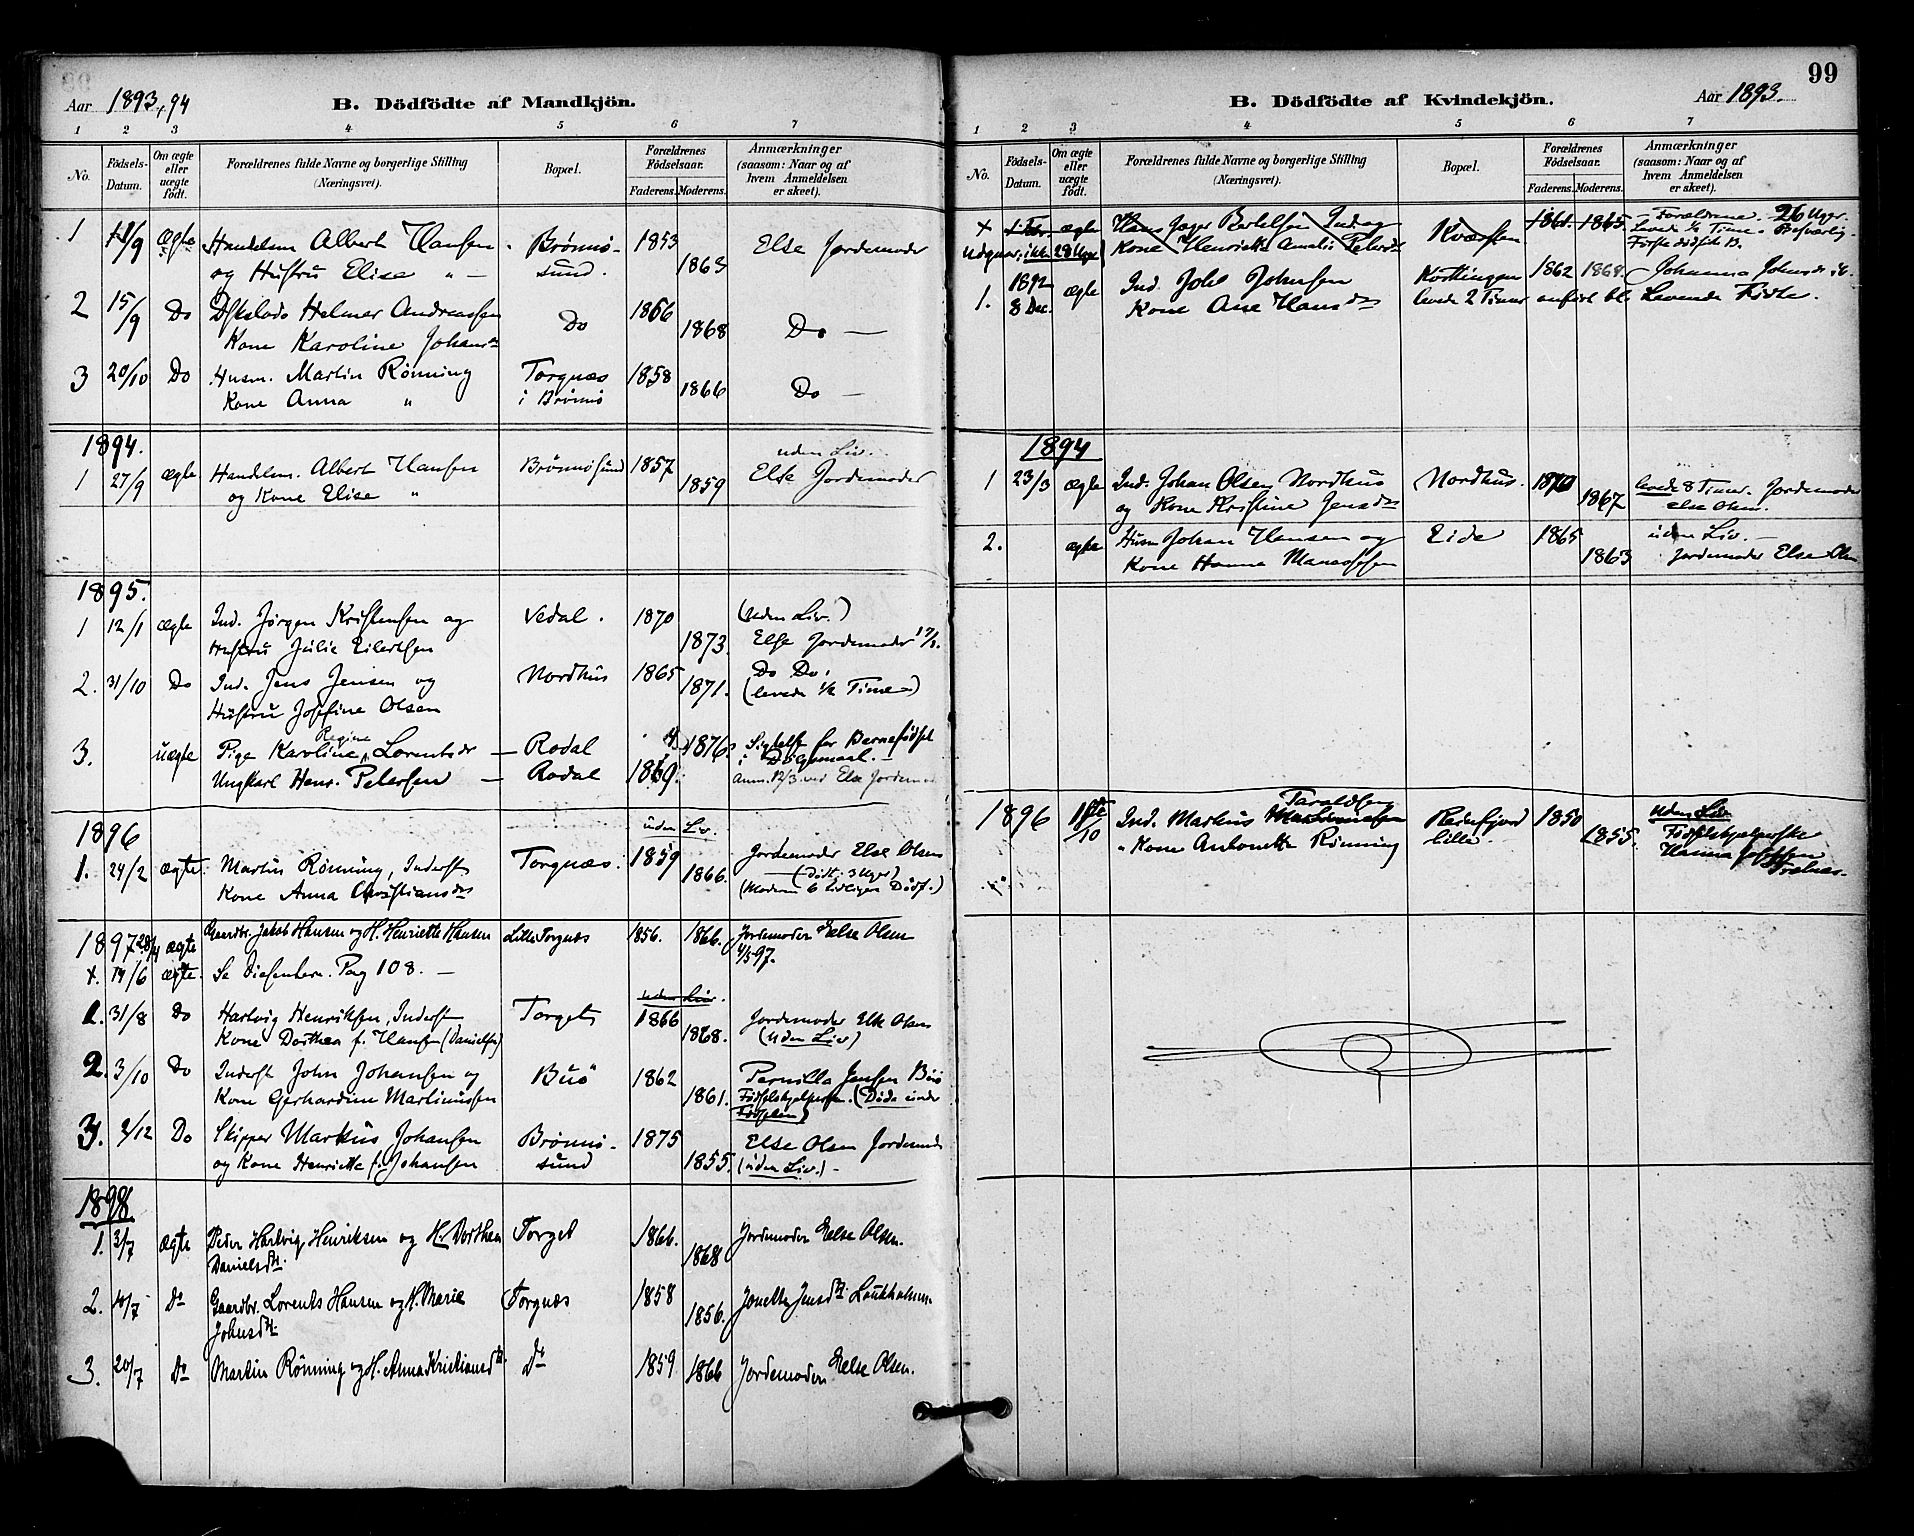 Aar 1893, 94
B. Dödfödte af Mandkjön.
1 2 3 4 5 6 7
No.
Födsels-Datum.
Om ægte eller uægte födt.
Forældrenes fulde Navne og borgerlige Stilling
(Næringsvei).
Bopæl.
Forældrenes Födselsaar.
Faderens. Moderens.
Anmærkninger
(saasom: Naar og af
hvem Anmeldelsen
er skeet).
1 11/9 Ægte Handelsm Albert Hansen Brönnö- 1853 Else Jordemoder
og Hustru Elise " — sund. 1863
2 15/9 Do Helmer Andreassen Do 1866
Kone Karoline Johansdr 1868 Do —
3 20/10 Do Husm. Martin Rönning Torgnæs 1858
Kone Anna " i Brönnö 1866 Do —
1894. uden Liv.
1 27/9 ægte Handelsm. Albert Hansen Brönnösund 1857 Else Jordemoder
og Kone Elise " 1859
1895.
1 12/1 ægte Ind. Jörgen Kristensen og Vedal. 1870 (uden Liv.)
Hustru Julie Eilertsen 1873. Else Jordemoder
2. 31/10 Do Ind. Jens Jensen og Nordhus 1865 Do Do.
Hustru Josefine Olsen 1871. (levede 1/2 Time)
3. uægte Pige Karoline Regine Lorentsdr — Rodal 1876. Sigtelse for Barnefödsel
i Dölgsmaal.
Ungkarl Henr. Petersen — Rodal 1869. Anm. 12/3 ved Else Jordemo.
1896 uden Liv.
1. 24/2 ægte Martin Rönning, Inderst Torgnæs. 1859 Jordemoder Else Olsen
Kone Anna Christiansdr 1866.
(Modern 6 tidligere Dödf.)
1897 28/4 ægte Gaardbr. Jakob Hansen og H. Henriette Hansen Lille Torgnæs 1856. 1866. Jordemoder Else Olsen
4/5 97.
+. 14/6 ægte. Se Pag 108. —
uden Liv.
1. 31/8 Do Hartvig Henriksen, Inderst Torget 1866 Jordemoder Else Olsen
Kone Dorthea f. Hansen (Danielsen) 1868. (Uden Liv)
2. 3/10 Do Inderst John Johansen og Buö 1862 Pernilla Jensen Buö
Kone Gerhardine Martinussen 1861. Födselshjelperske. (Döde under
Födselen)
3. 2/12 Do Skipper Markus Johansen Brönnö- 1875 Else Olsen Jordemoder
og Kone Henriette f. Johansen sund 1855. (uden Liv.) —
1898
1. 3/7 ægte Peder Hartvig Henriksen og H. Dorthea Torget 1866. Jordemoder Else Olsen.
Danielsdtr. 1868
2. 10/7 Do Gaardbr. Lorents Hansen og H. Marie Torgnæs 1858 Jonette Jensdtr
Johnsdtr. 1856.
3. 20/7 Do Martin Rönning og H. Anna Kristiansdtr. Do 1859 1866 Jordemoder Else Olsen.
99
B. Dödfödte af Kvindekjön.
Aar 1893.
1 2 3 4 5 6 7
No.
Födsels-Datum.
Om ægte eller uægte födt.
Forældrenes fulde Navne og borgerlige Stilling
(Næringsvei).
Bopæl.
Forældrenes Födselsaar.
Faderens. Moderens.
Anmærkninger
(saasom: Naar og af
hvem Anmeldelsen
er skeet).
+ ægte Hans Jæger Bertelsen Ind. og 1861. 1865 Forældrene. 26 Uger.
ikke 28 Uger Kone Henriette Amalie Petersdr levede 1/2 Time
Förste dödföde B.
1892 Ind. Johs Johnsen 1862 1868.
1. 8 Dec. ægte Kone Ane Hansdr levede 2 Timer anfört bl. Levende Födte.
1894
1 23/3 ægte Ind. Johan Olsen Nordhus Nordhus. 1870 levede 8 Timer. Jordemoder
og Kone Kristine Jensdr 1867 Else Olsen.
2. ægte Husm Johan Hansen og Eide 1865 uden Liv. —
Kone Hanna Manassesen 1863 Jordemoder Else Olsen
1896 Ind. Markus Taraldsen Reinfjord 1850 Uden Liv
10 " Kone Antonette Rönning lille. 1855. Födselshjelperske
Hanna Josefsen